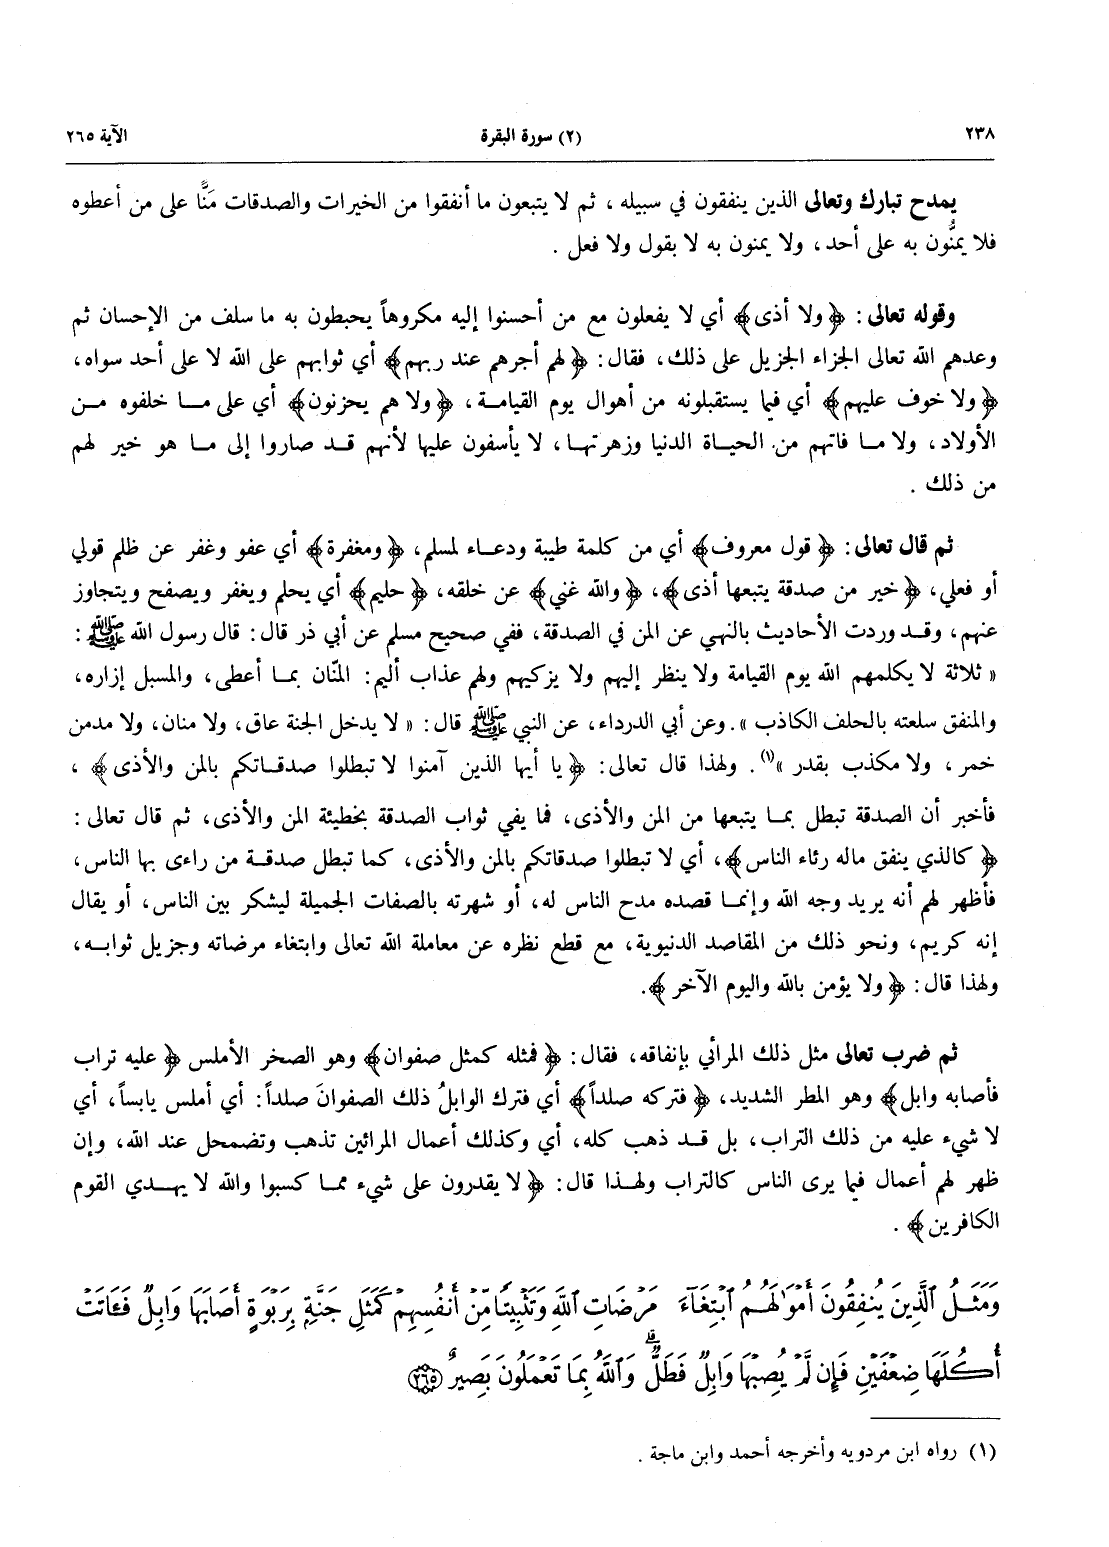 ٢٣٨ (٢) سورة البقرة الآية ٢٦٥
يمدح تبارك وتعالى الذين ينفقون في سبيله ، ثم لا يتبعون ما أنفقوا من الخيرات والصدقات مَنًّا على من أعطوه
فلا يمنُّون به على أحد، ولا يمنون به لا بقول ولا فعل .
وقوله تعالى: ﴿ولا أذى﴾ أي لا يفعلون مع من أحسنوا إليه مكروهاً يحبطون به ما سلف من الإحسان ثم
وعدهم الله تعالى الجزاء الجزيل على ذلك، فقال: ﴿لهم أجرهم عند ربهم﴾ أي ثوابهم على الله لا على أحد سواه،
﴿ولا خوف عليهم﴾ أي فيما يستقبلونه من أهوال يوم القيامة، ﴿ولا هم يحزنون﴾ أي على ما خلفوه من
الأولاد، ولا ما فاتهم من الحياة الدنيا وزهرتها، لا يأسفون عليها لأنهم قد صاروا إلى ما هو خير لهم
من ذلك .
ثم قال تعالى: ﴿قول معروف﴾ أي من كلمة طيبة ودعاء لمسلم، ﴿ومغفرة﴾ أي عفو وغفر عن ظلم قولي
أو فعلي، ﴿خير من صدقة يتبعها أذى﴾، ﴿والله غني﴾ عن خلقه، ﴿حليم﴾ أي يحلم ويغفر ويصفح ويتجاوز
عنهم، وقد وردت الأحاديث بالنهي عن المن في الصدقة، ففي صحيح مسلم عن أبي ذر قال: قال رسول الله ﷺ :
« ثلاثة لا يكلمهم الله يوم القيامة ولا ينظر إليهم ولا يزكيهم ولهم عذاب أليم: المنّان بما أعطى، والمسبل إزاره،
والمنفق سلعته بالحلف الكاذب ». وعن أبي الدرداء، عن النبي ﷺ قال: « لا يدخل الجنة عاق، ولا منان، ولا مدمن
خمر، ولا مكذب بقدر »(١). ولهذا قال تعالى: ﴿يا أيها الذين آمنوا لا تبطلوا صدقاتكم بالمن والأذى﴾ ،
فأخبر أن الصدقة تبطل بما يتبعها من المن والأذى، فما يفي ثواب الصدقة بخطيئة المن والأذى، ثم قال تعالى:
﴿كالذي ينفق ماله رئاء الناس﴾، أي لا تبطلوا صدقاتكم بالمن والأذى، كما تبطل صدقة من راءى بها الناس،
فأظهر لهم أنه يريد وجه الله وإنما قصده مدح الناس له، أو شهرته بالصفات الجميلة ليشكر بين الناس، أو يقال
إنه كريم، ونحو ذلك من المقاصد الدنيوية، مع قطع نظره عن معاملة الله تعالى وابتغاء مرضاته وجزيل ثوابه،
ولهذا قال: ﴿ولا يؤمن بالله واليوم الآخر﴾.
ثم ضرب تعالى مثل ذلك المرائي بإنفاقه، فقال: ﴿فمثله كمثل صفوان﴾ وهو الصخر الأملس ﴿عليه تراب
فأصابه وابل﴾ وهو المطر الشديد، ﴿فتركه صلداً﴾ أي فترك الوابلُ ذلك الصفوانَ صلداً: أي أملس يابساً، أي
لا شيء عليه من ذلك التراب، بل قد ذهب كله، أي وكذلك أعمال المرائين تذهب وتضمحل عند الله، وإن
ظهر لهم أعمال فيما يرى الناس كالتراب ولهذا قال: ﴿لا يقدرون على شيء مما كسبوا والله لا يهدي القوم
الكافرين﴾ .
وَمَثَلُ ٱلَّذِينَ يُنفِقُونَ أَمْوَٰلَهُمُ ٱبْتِغَآءَ مَرْضَاتِ ٱللَّهِ وَتَثْبِيتًا مِّنْ أَنفُسِهِمْ كَمَثَلِ جَنَّةٍۭ بِرَبْوَةٍ أَصَابَهَا وَابِلٌ فَـَٔاتَتْ
أُكُلَهَا ضِعْفَيْنِ فَإِن لَّمْ يُصِبْهَا وَابِلٌ فَطَلٌّ ۗ وَٱللَّهُ بِمَا تَعْمَلُونَ بَصِيرٌ ﴿٢٦٥﴾
(١) رواه ابن مردويه وأخرجه أحمد وابن ماجة .